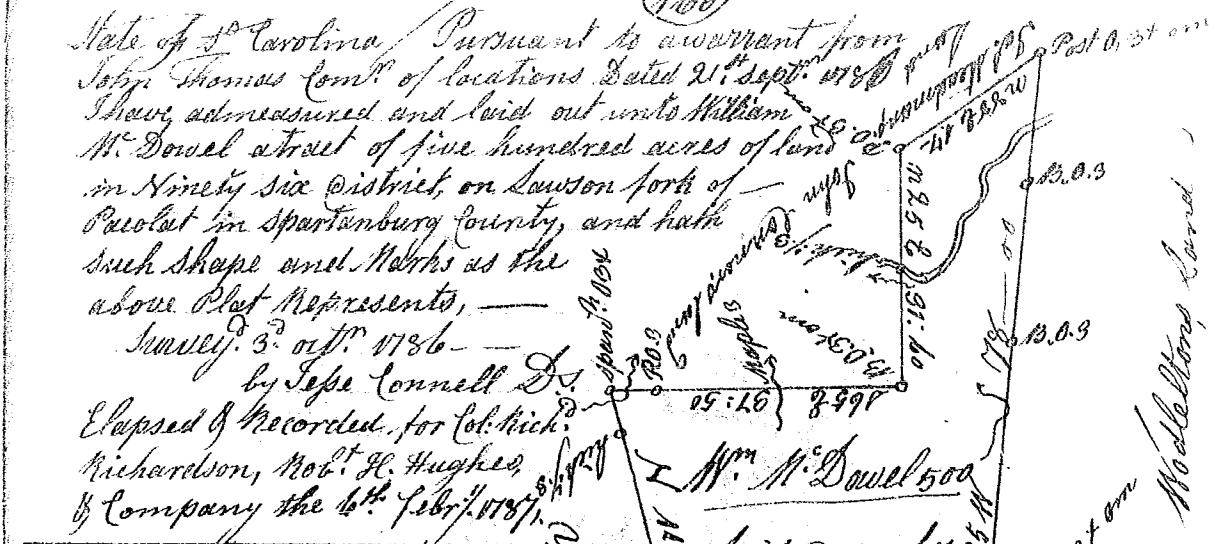 State of So Carolina / Pursuant to a warrant from
John Thomas Comr. of locations Dated 21st. Septmr. 1786
I have admeasured and laid out unto William
Mc. Dowel a tract of five hundred acres of land
in Ninety six District, on Lawson fork of —
Pacolat in Spartanburg County, and hath
such shape and Marks as the
above Plat Represents, —
Surveyd. 3d. octr. 1786 — —
by Jesse Connell D.S.
Elapsed & Recorded for Col: Richd.
Richardson, Robt. H. Hughes,
& Company the 6th. febry. 1787.
Post 0,3+ om
B.0.3
B.0.3
John
Land
R03
Maple 3
B.03+om
97:50
Wm Mc Dowel 500
Wodleltons Land